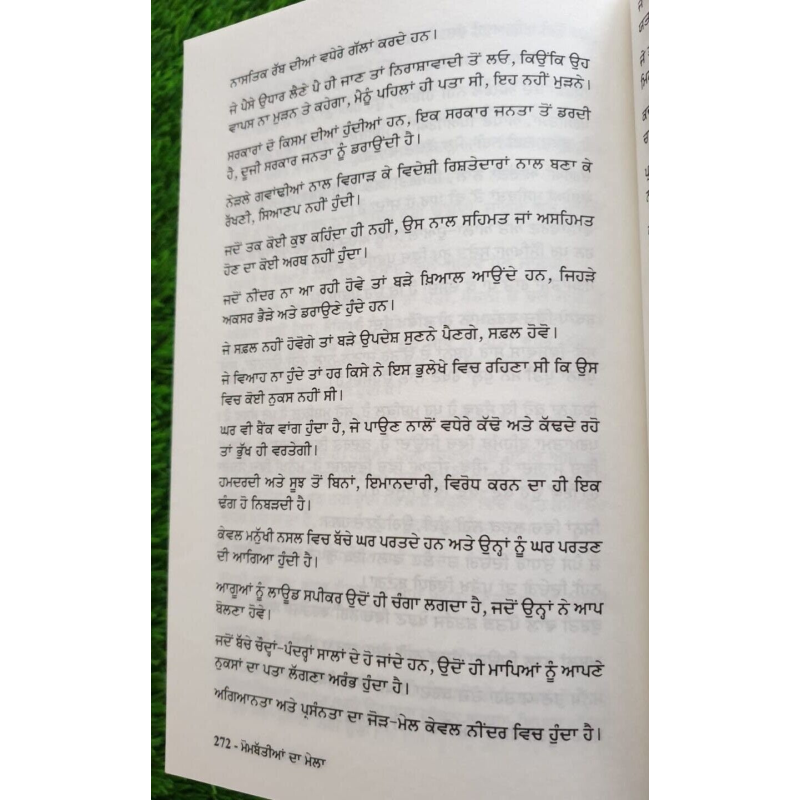 ਨਾਸਤਿਕ ਰੱਬ ਦੀਆਂ ਵਧੇਰੇ ਗੱਲਾਂ ਕਰਦੇ ਹਨ।
ਜੇ ਪੈਸੇ ਉਧਾਰ ਲੈਣੇ ਪੈ ਹੀ ਜਾਣ ਤਾਂ ਨਿਰਾਸ਼ਾਵਾਦੀ ਤੋਂ ਲਓ, ਕਿਉਂਕਿ ਉਹ
ਵਾਪਸ ਨਾ ਮੁੜਨ ਤੇ ਕਹੇਗਾ, ਮੈਨੂੰ ਪਹਿਲਾਂ ਹੀ ਪਤਾ ਸੀ, ਇਹ ਨਹੀਂ ਮੁੜਨੇ।
ਸਰਕਾਰਾਂ ਦੋ ਕਿਸਮ ਦੀਆਂ ਹੁੰਦੀਆਂ ਹਨ, ਇਕ ਸਰਕਾਰ ਜਨਤਾ ਤੋਂ ਡਰਦੀ
ਹੈ, ਦੂਜੀ ਸਰਕਾਰ ਜਨਤਾ ਨੂੰ ਡਰਾਉਂਦੀ ਹੈ।
ਨੇੜਲੇ ਗਵਾਂਢੀਆਂ ਨਾਲ ਵਿਗਾੜ ਕੇ ਵਿਦੇਸ਼ੀ ਰਿਸ਼ਤੇਦਾਰਾਂ ਨਾਲ ਬਣਾ ਕੇ
ਰੱਖਣੀ, ਸਿਆਣਪ ਨਹੀਂ ਹੁੰਦੀ।
ਜਦੋਂ ਤਕ ਕੋਈ ਕੁਝ ਕਹਿੰਦਾ ਹੀ ਨਹੀਂ, ਉਸ ਨਾਲ ਸਹਿਮਤ ਜਾਂ ਅਸਹਿਮਤ
ਹੋਣ ਦਾ ਕੋਈ ਅਰਥ ਨਹੀਂ ਹੁੰਦਾ।
ਜਦੋਂ ਨੀਂਦਰ ਨਾ ਆ ਰਹੀ ਹੋਵੇ ਤਾਂ ਬੜੇ ਖ਼ਿਆਲ ਆਉਂਦੇ ਹਨ, ਜਿਹੜੇ
ਅਕਸਰ ਭੈੜੇ ਅਤੇ ਡਰਾਉਣੇ ਹੁੰਦੇ ਹਨ।
ਜੇ ਸਫ਼ਲ ਨਹੀਂ ਹੋਵੋਗੇ ਤਾਂ ਬੜੇ ਉਪਦੇਸ਼ ਸੁਣਨੇ ਪੈਣਗੇ, ਸਫ਼ਲ ਹੋਵੋ।
ਜੇ ਵਿਆਹ ਨਾ ਹੁੰਦੇ ਤਾਂ ਹਰ ਕਿਸੇ ਨੇ ਇਸ ਭੁਲੇਖੇ ਵਿਚ ਰਹਿਣਾ ਸੀ ਕਿ ਉਸ
ਵਿਚ ਕੋਈ ਨੁਕਸ ਨਹੀਂ ਸੀ।
ਘਰ ਵੀ ਬੈਂਕ ਵਾਂਗ ਹੁੰਦਾ ਹੈ, ਜੇ ਪਾਉਣ ਨਾਲੋਂ ਵਧੇਰੇ ਕੱਢੋ ਅਤੇ ਕੱਢਦੇ ਰਹੋ
ਤਾਂ ਭੁੱਖ ਹੀ ਵਰਤੇਗੀ।
ਹਮਦਰਦੀ ਅਤੇ ਸੂਝ ਤੋਂ ਬਿਨਾਂ, ਇਮਾਨਦਾਰੀ, ਵਿਰੋਧ ਕਰਨ ਦਾ ਹੀ ਇਕ
ਢੰਗ ਹੋ ਨਿਬੜਦੀ ਹੈ।
ਕੇਵਲ ਮਨੁੱਖੀ ਨਸਲ ਵਿਚ ਬੱਚੇ ਘਰ ਪਰਤਦੇ ਹਨ ਅਤੇ ਉਨ੍ਹਾਂ ਨੂੰ ਘਰ ਪਰਤਣ
ਦੀ ਆਗਿਆ ਹੁੰਦੀ ਹੈ।
ਆਗੂਆਂ ਨੂੰ ਲਾਊਡ ਸਪੀਕਰ ਉਦੋਂ ਹੀ ਚੰਗਾ ਲਗਦਾ ਹੈ, ਜਦੋਂ ਉਨ੍ਹਾਂ ਨੇ ਆਪ
ਬੋਲਣਾ ਹੋਵੇ।
ਜਦੋਂ ਬੱਚੇ ਚੌਦ੍ਹਾਂ-ਪੰਦਰ੍ਹਾਂ ਸਾਲਾਂ ਦੇ ਹੋ ਜਾਂਦੇ ਹਨ, ਉਦੋਂ ਹੀ ਮਾਪਿਆਂ ਨੂੰ ਆਪਣੇ
ਨੁਕਸਾਂ ਦਾ ਪਤਾ ਲੱਗਣਾ ਅਰੰਭ ਹੁੰਦਾ ਹੈ।
ਅਗਿਆਨਤਾ ਅਤੇ ਪ੍ਰਸੰਨਤਾ ਦਾ ਜੋੜ-ਮੇਲ ਕੇਵਲ ਨੀਂਦਰ ਵਿਚ ਹੁੰਦਾ ਹੈ।
272 - ਮੋਮਬੱਤੀਆਂ ਦਾ ਮੇਲਾ